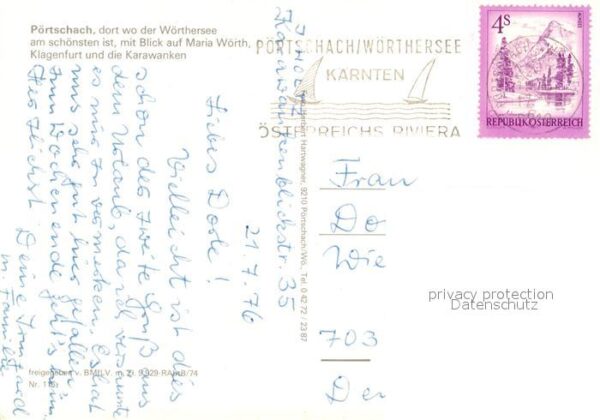 Pörtschach, dort wo der Wörthersee
am schönsten ist, mit Blick auf Maria Wörth,
Klagenfurt und die Karawanken
PÖRTSCHACH/WÖRTHERSEE
KÄRNTEN
ÖSTERREICHS RIVIERA
4S
ALMSEE
REPUBLIK ÖSTERREICH
Karawankenblickstr. 35
21.7.76
Liebes Dorle!
Vielleicht ist dies
schon der zweite Gruß aus
dem Urlaub, da ich versäumte
es mir zu vermerken. Es hat
uns sehr gut hier gefallen.
Zum Wochenende geht's heim
Herzlichst Deine Irmtraud
m. Familie
Herbert Hartwagner, 9210 Pörtschach/Wö., Tel. 0 42 72 / 23 87
Frau
Do
Wie
703
Der
privacy protection
Datenschutz
freigegeben v. BMfLV m. Zl.
Nr.